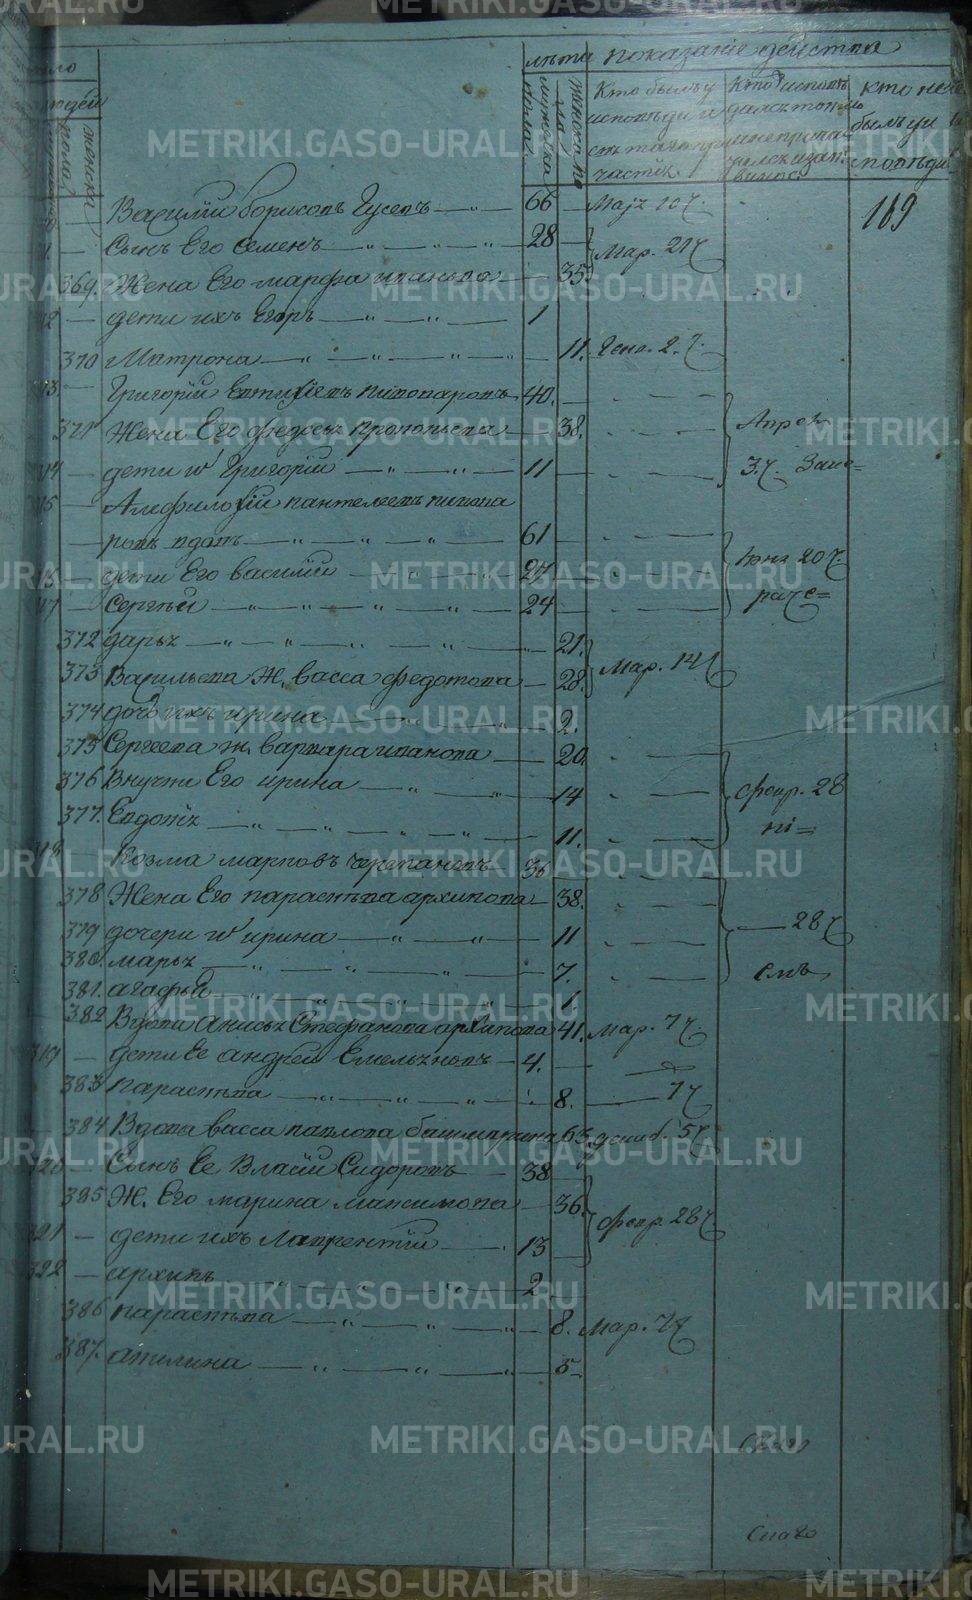 лѣта показаніе дѣйства
мужеска пола
женска по ла
Кто былъ у исповѣди и
частія
Кто исповѣ
дался токмо
а не прича
кто не
былъ у и
сповѣди
169
Василій борисовъ Гусевъ 66 Маія 10 ч.
Сынъ Его Семенъ 28 Мар. 21 ч
369. Жена Его марфа иванова 35
дети ихъ Егоръ 1
370 Матрона 11. Генв. 2. ч.
Григорій Евтифіевъ пивоваровъ 40.
371 Жена Его федосья прокопьева 38. Апрел
дети ѿ Григорій 11 3. ч. Зане=
Амфилофій пантелеевъ пивова
ровъ вдовъ 61
дети Его василій 27 Іюня 20 ч.
Сергѣй 24 раче=
372 дарья 21.
373 Васильева Ж. васса федотова 28. Мар. 14 ч
374 дочь ихъ ирина 2.
375 Сергеева ж. варвара иванова 20
376 Внучки Его ирина 14 февр. 28
377. Евдокія 11. ні=
Козма марковъ черепановъ 36
378 Жена Его парасковья архипова 38.
379 дочери ѿ ирина 11 28 ч
380. марья 7. емъ
381. агафья 1.
382 Вдова Анисья Стефанова архипова 41. Мар. 7 ч
дети Ее андрей Емельяновъ 4.
383 параскева 8. 7 ч
384 Вдова васса павлова башкирина 63. декаб. 5 ч
Сынъ Ее Власій Сидоровъ 38
385 Ж. Его марина максимова 36. февр. 28 ч
321 дети ихъ лаврентій 13
322 архипъ 2
386 параскева 8. Мар. 7 ч
387. акилина 5
Снаго
METRIKI.GASO-URAL.RU